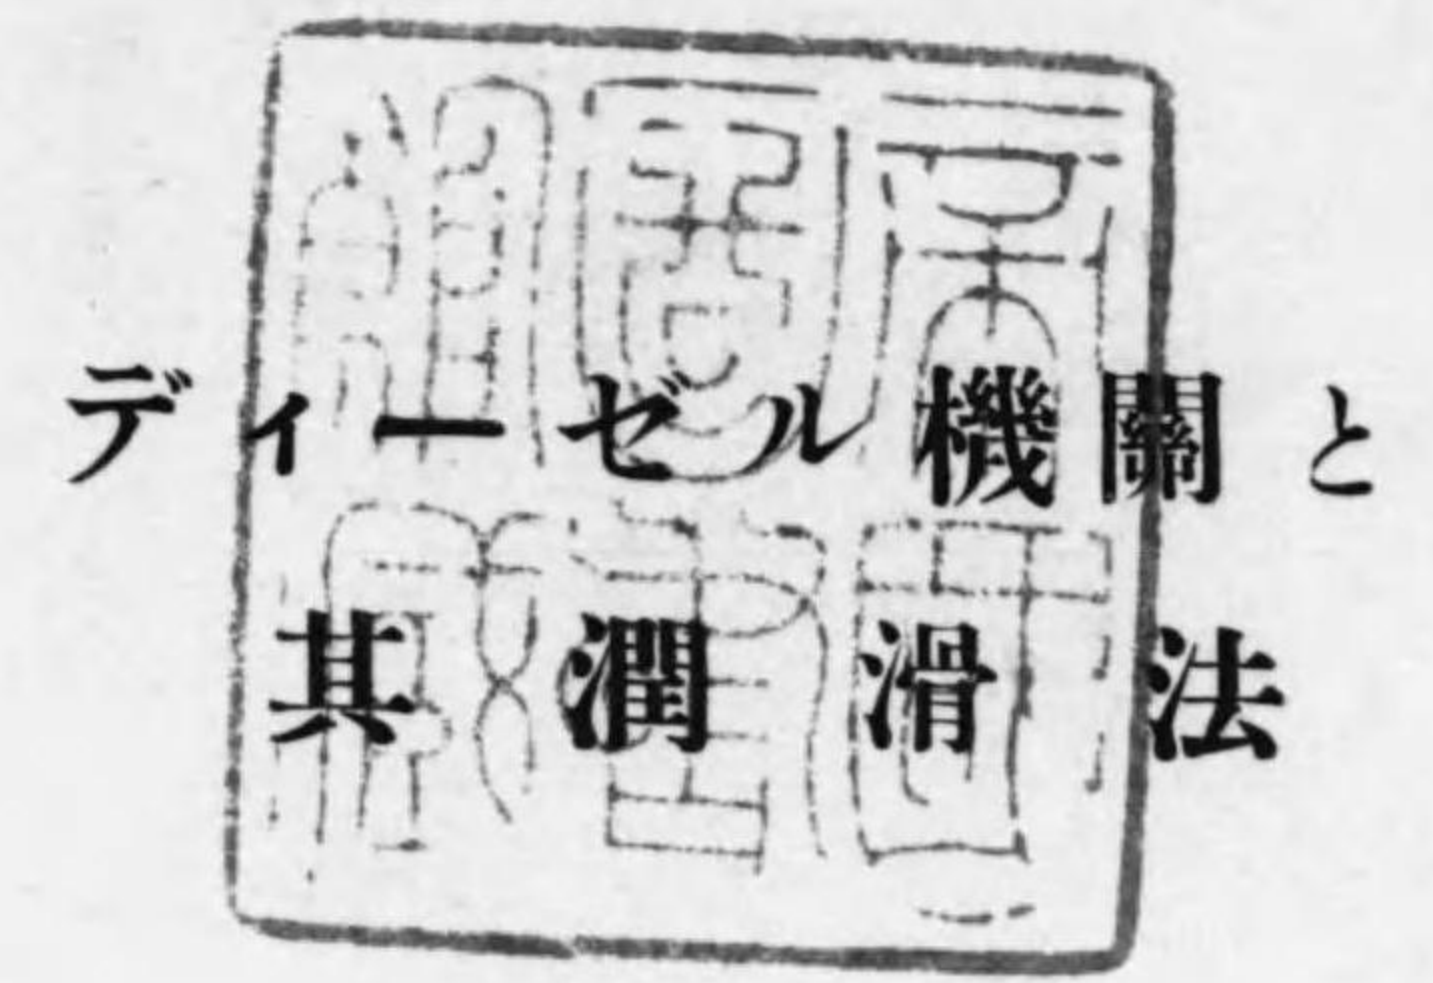 ディーゼル機關と
其潤滑法